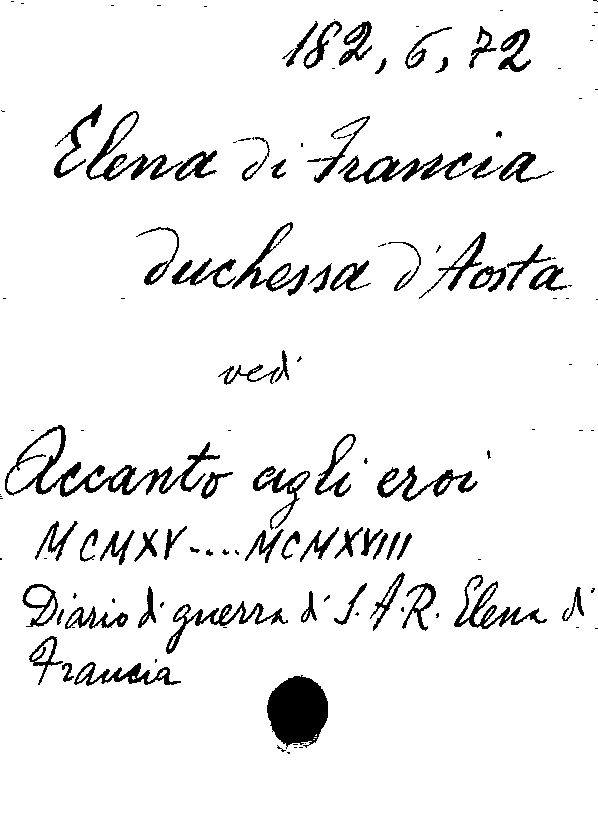 182, 6, 72
Elena di Francia
duchessa d'Aosta
vedi
Accanto agli eroi
MCMXV....MCMXVIII
Diario di guerra di S.A.R. Elena di
Francia